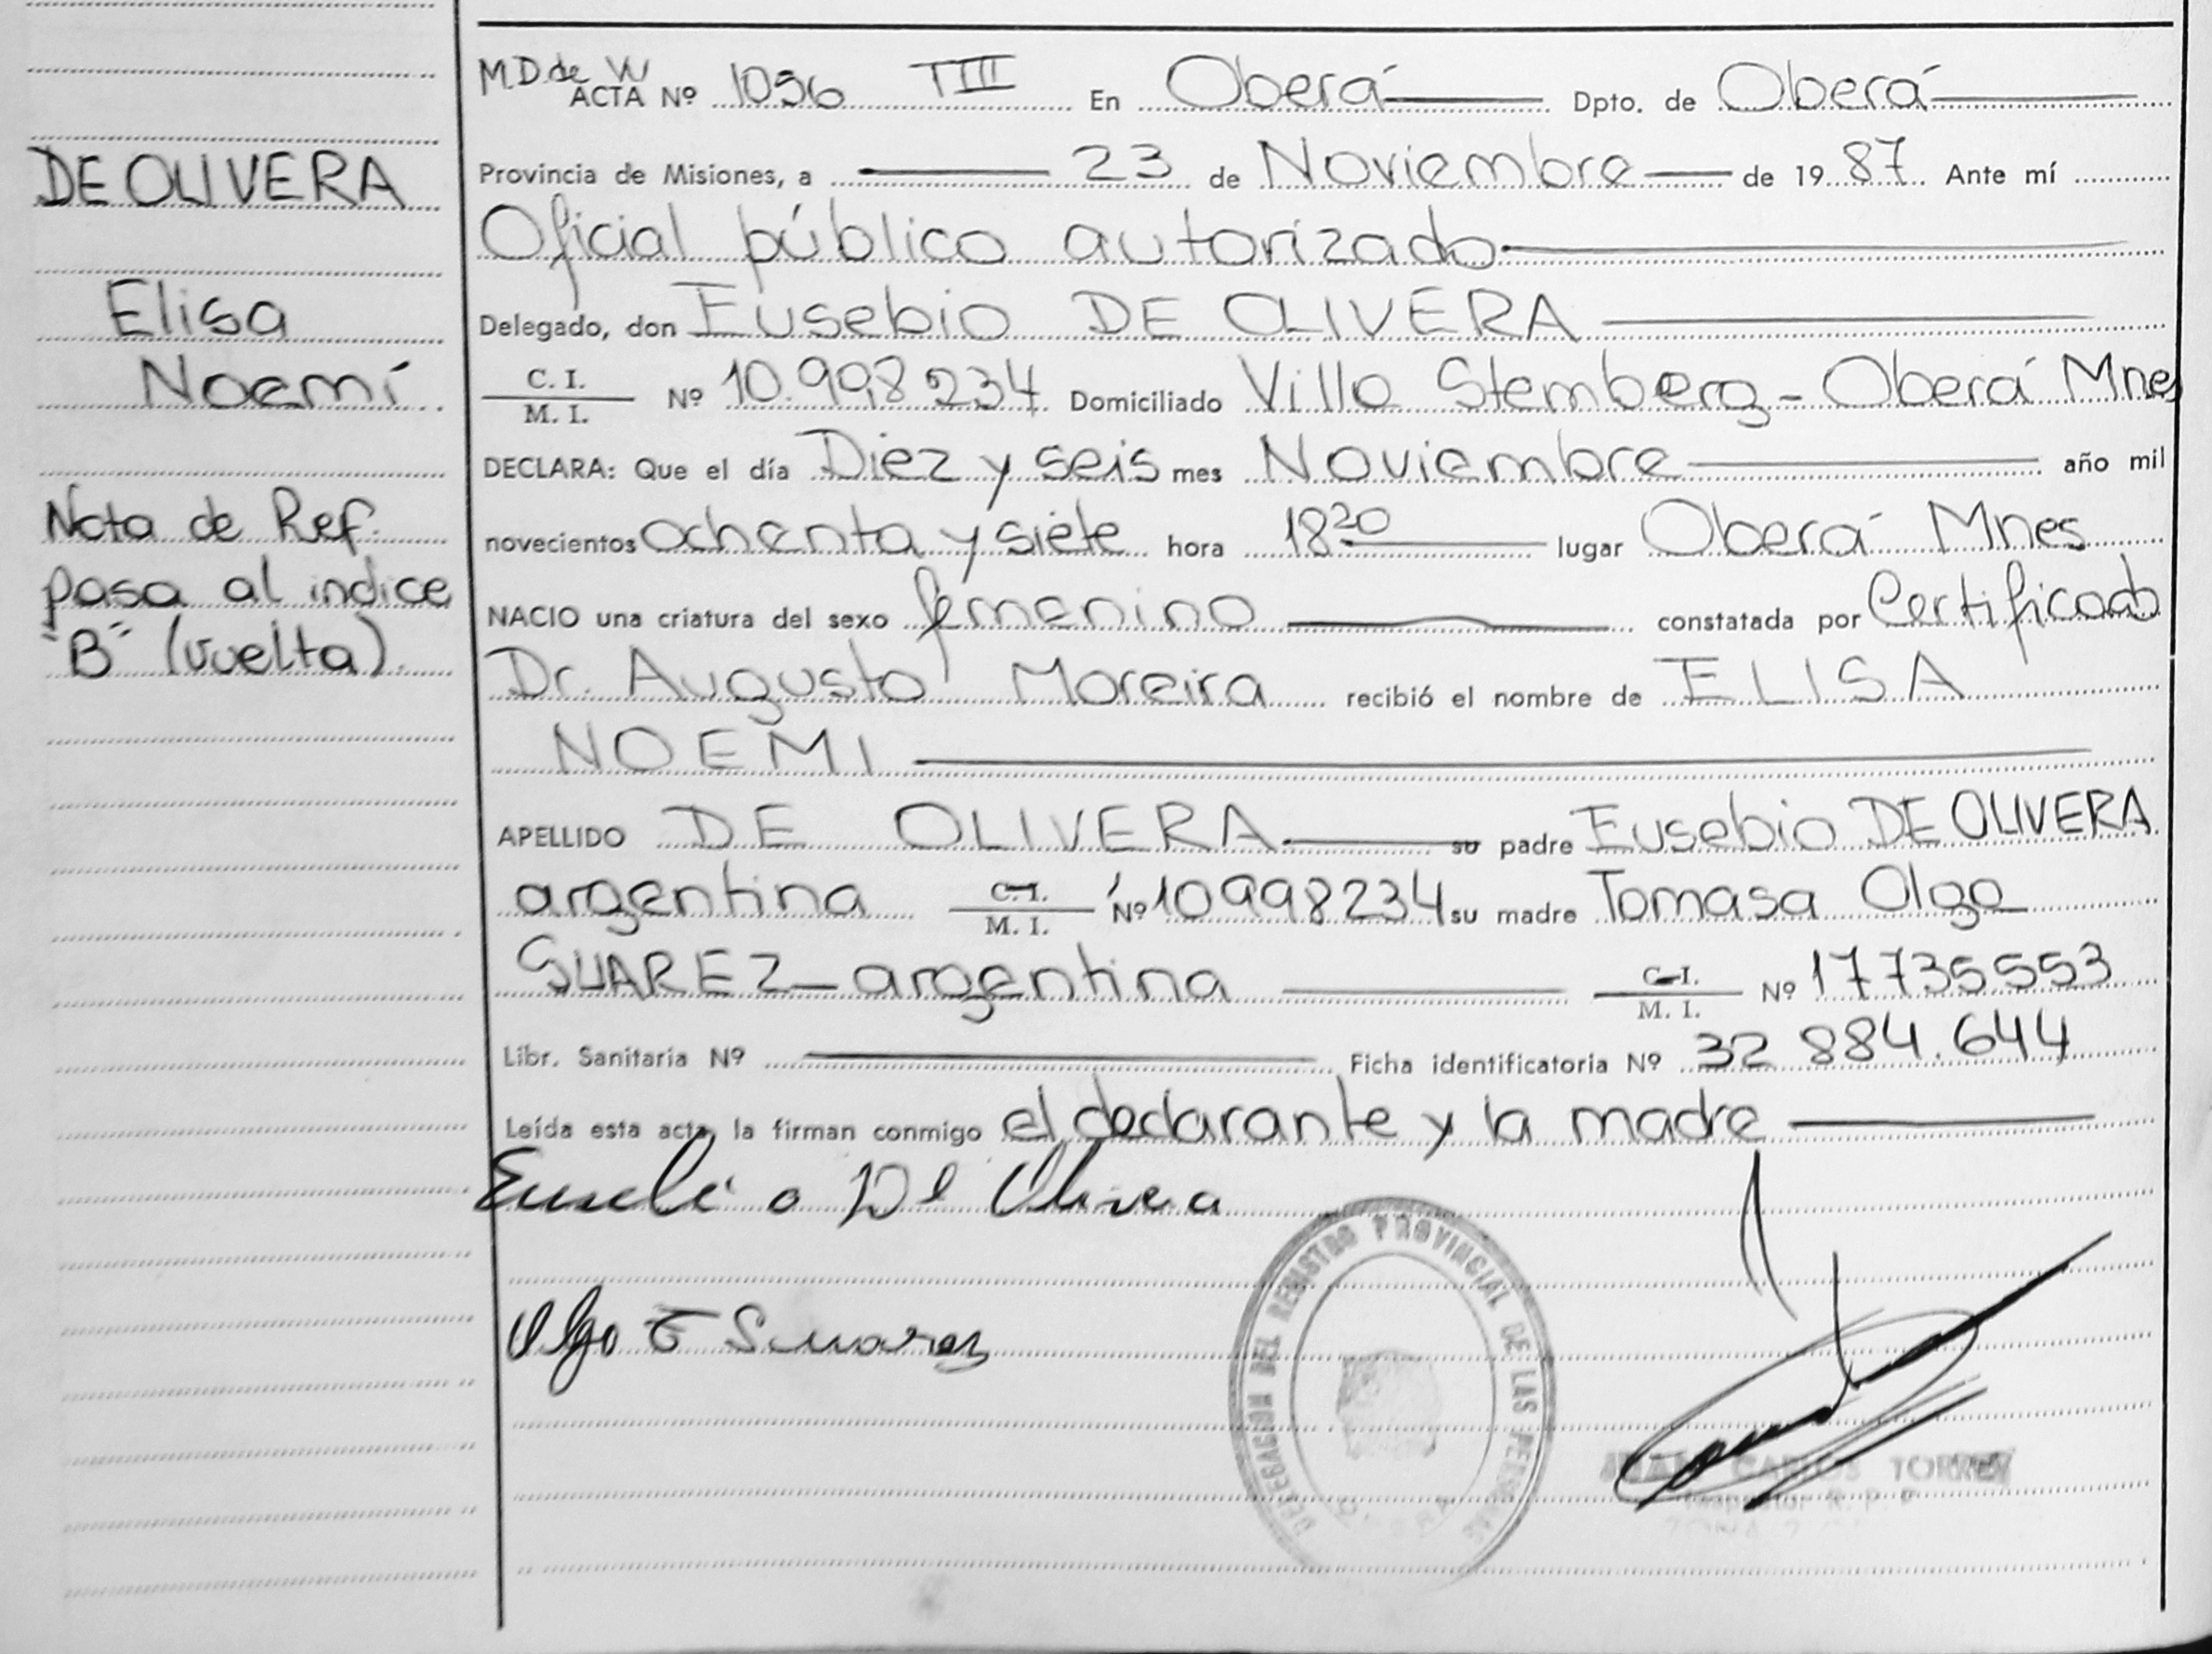 DE OLIVERA
Elisa
Noemí
Nota de Ref.
pasa al indice
"B" (vuelta).
M.D. de W
ACTA Nº 1056 TIII En Oberá Dpto. de Oberá
Provincia de Misiones, a 23 de Noviembre de 1987. Ante mí
Oficial público autorizado
Delegado, don Eusebio DE OLIVERA
C. I. / M. I. Nº 10.998234 Domiciliado Villa Stemberg - Oberá Mnes
DECLARA: Que el día Diez y seis mes Noviembre año mil
novecientos ochenta y siete hora 18 30 lugar Oberá Mnes
NACIO una criatura del sexo femenino constatada por Certificado
Dr. Augusto Moreira recibió el nombre de ELISA
NOEMI
APELLIDO DE OLIVERA su padre Eusebio DE OLIVERA
argentina C. I. / M. I. Nº 10998234 su madre Tomasa Olga
SUAREZ - argentina C. I. / M. I. Nº 17735553
Libr. Sanitaria Nº Ficha identificatoria Nº 32 884.644
Leída esta acta, la firman conmigo el declarante y la madre
Eusebio De Olivera
Olga T Suarez
DELEGACION DEL REGISTRO PROVINCIAL DE LAS PERSONAS
OBERA
JUAN CARLOS TORRES
Inspector R. P. P
ZONA